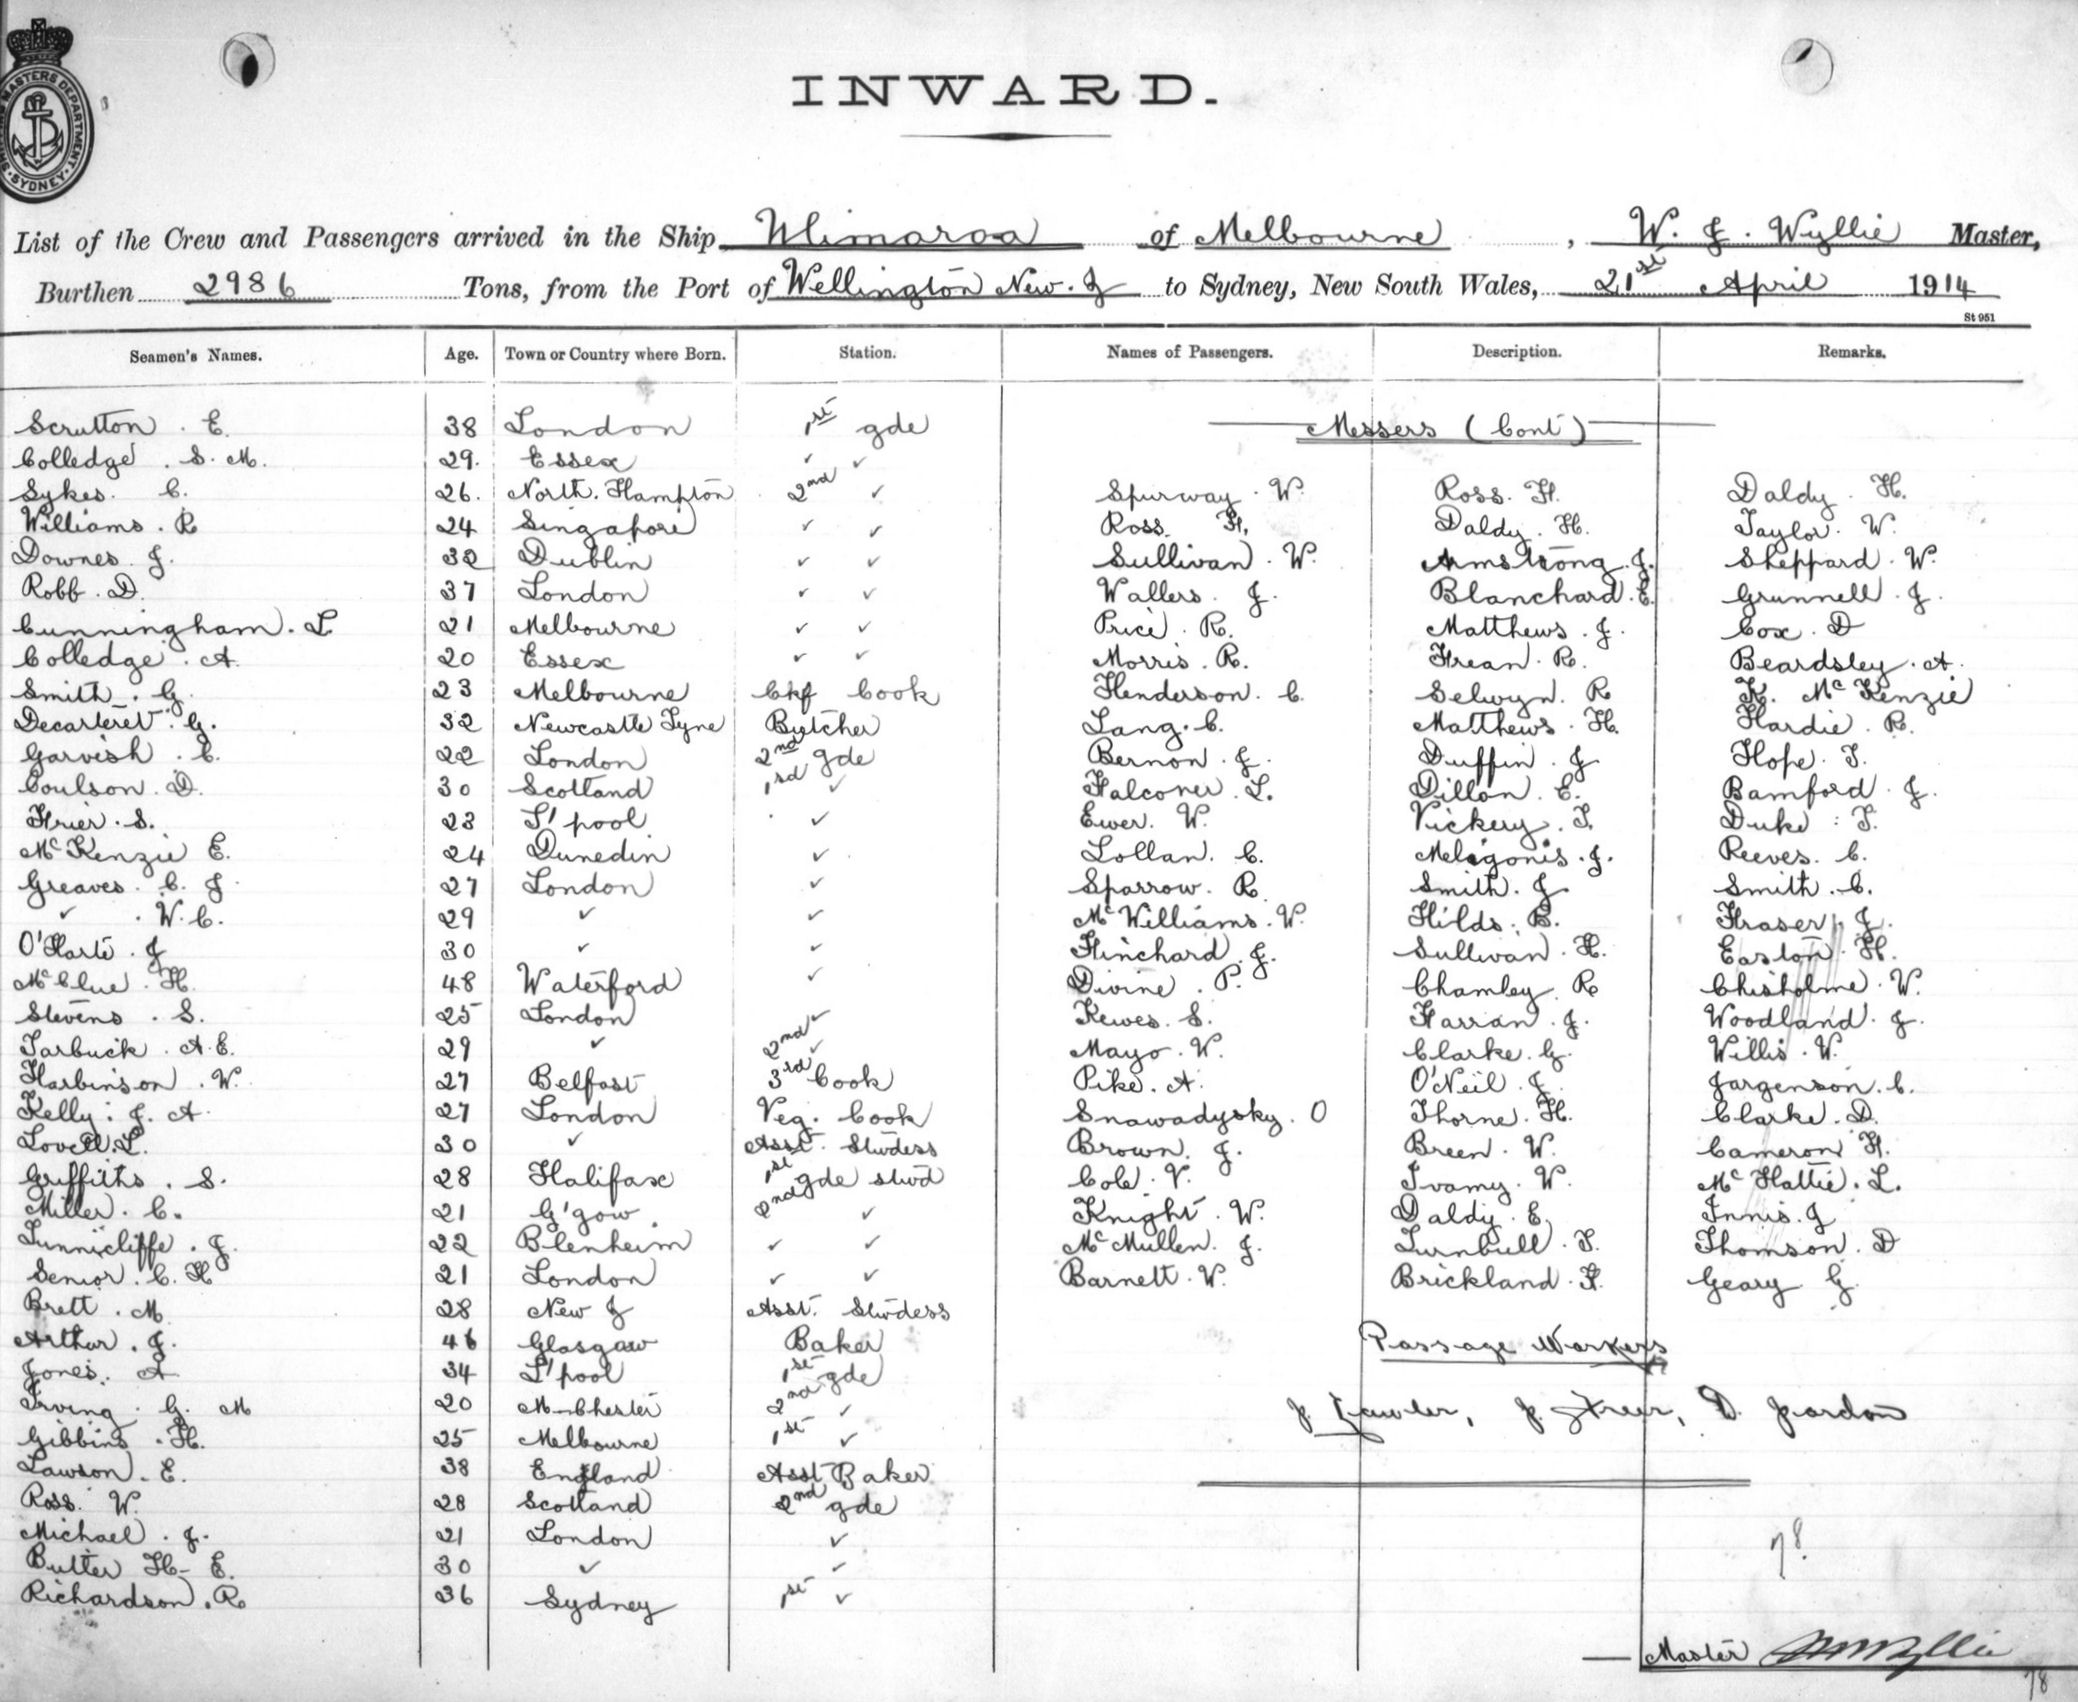 SHIPPING MASTERS DEPARTMENT. SYDNEY.
INWARD.
List of the Crew and Passengers arrived in the Ship Ulimaroa of Melbourne, W. J. Wyllie Master,
Burthen 2986 Tons, from the Port of Wellington New. Z to Sydney, New South Wales, 21st April 1914
St 951
Seamen's Names. Age. Town or Country where Born. Station. Names of Passengers. Description. Remarks.
Scrutton . E. 38 London 1st gde Messers (Cont)
Colledge . S. M. 29. Essex ✓ ✓
Sykes. C. 26. North. Hampton 2nd ✓ Spurway . W. Ross. H. Daldy . H.
Williams . R 24 Singapore ✓ ✓ Ross. H. Daldy. H. Taylor. W.
Downes. J. 32 Dublin ✓ ✓ Sullivan . W. Armstrong. J. Sheppard. W.
Robb. D. 37 London ✓ ✓ Wallers. J. Blanchard. E. Grunnell. J.
Cunningham. L. 21 Melbourne ✓ ✓ Price. R. Matthews. J. Cox. D
Colledge. A. 20 Essex ✓ ✓ Morris. R. Frean. R. Beardsley. A.
Smith. G. 23 Melbourne Chf Cook Henderson. C. Selwyn. R K. McKenzie
Decarteret. G. 32 Newcastle Tyne Butcher Lang. C. Matthews. H. Hardie. R.
Garvish. C. 22 London 2nd gde Bernon. J. Duffin. J Hope. T.
Coulson. D. 30 Scotland 1rd ✓ Falconer. L. Dillon. E. Bamford. J.
Frier. S. 23 L'pool ✓ Ewer. W. Vickery. T. Duke. T.
McKenzie E. 24 Dunedin ✓ Lollan. C. Meligonis. J. Reeves. C.
Greaves. C. J. 27 London ✓ Sparrow. R. Smith. J. Smith. C.
✓ . W. C. 29 ✓ ✓ McWilliams. W. Hilds. B. Fraser. J.
O'Harte. J 30 ✓ ✓ Hinchard. J. Sullivan. H. Easton. H.
McClue. H. 48 Waterford ✓ Divine. P. Chamley. R Chisholme. W.
Stevens. S. 25 London ✓ Kewes. S. Farran. J. Woodland. J.
Tarbuck. A. E. 29 ✓ 2nd ✓ Mayo. W. Clarke. G. Willis. W.
Harbinson. W. 27 Belfast 3rd Cook Pike. A. O'Neil. J. Jargenson. C.
Kelly. J. A. 27 London Veg. Cook Snawadysky. O Thorne. H. Clarke. D.
Lovell. L. 30 ✓ Asst. Stwdess Brown. J. Breen. W. Cameron H.
Griffiths. S. 28 Halifax 1st gde stwd Cole. V. Ivamy. W. McHattie. L.
Miller. C. 21 G'gow. 2nd ✓ Knight. W. Daldy. E. Innis. J
Tunnicliffe. J. 22 Blenheim ✓ ✓ McMullen. J. Turnbull. T. Thomson. D
Senior. C. H 21 London ✓ ✓ Barnett. W. Brickland. H. Geary G.
Brett. M. 28 New Z Asst. Stwdess
Arthur. J. 46 Glasgow Baker Passage Workers
Jones. A 34 L'pool 1st gde
Irving. G. M 20 M-Chester 2nd ✓ J. Lawler, J. Greer, D. Jardon
Gibbins. H. 25 Melbourne 1st ✓
Lawson. E. 38 England Asst Baker
Ross. W. 28 Scotland 2nd gde
Michael. J. 21 London ✓
Butter H- E. 30 ✓ ✓ 78.
Richardson. R 36 Sydney 1st ✓
Master W J Wyllie
78